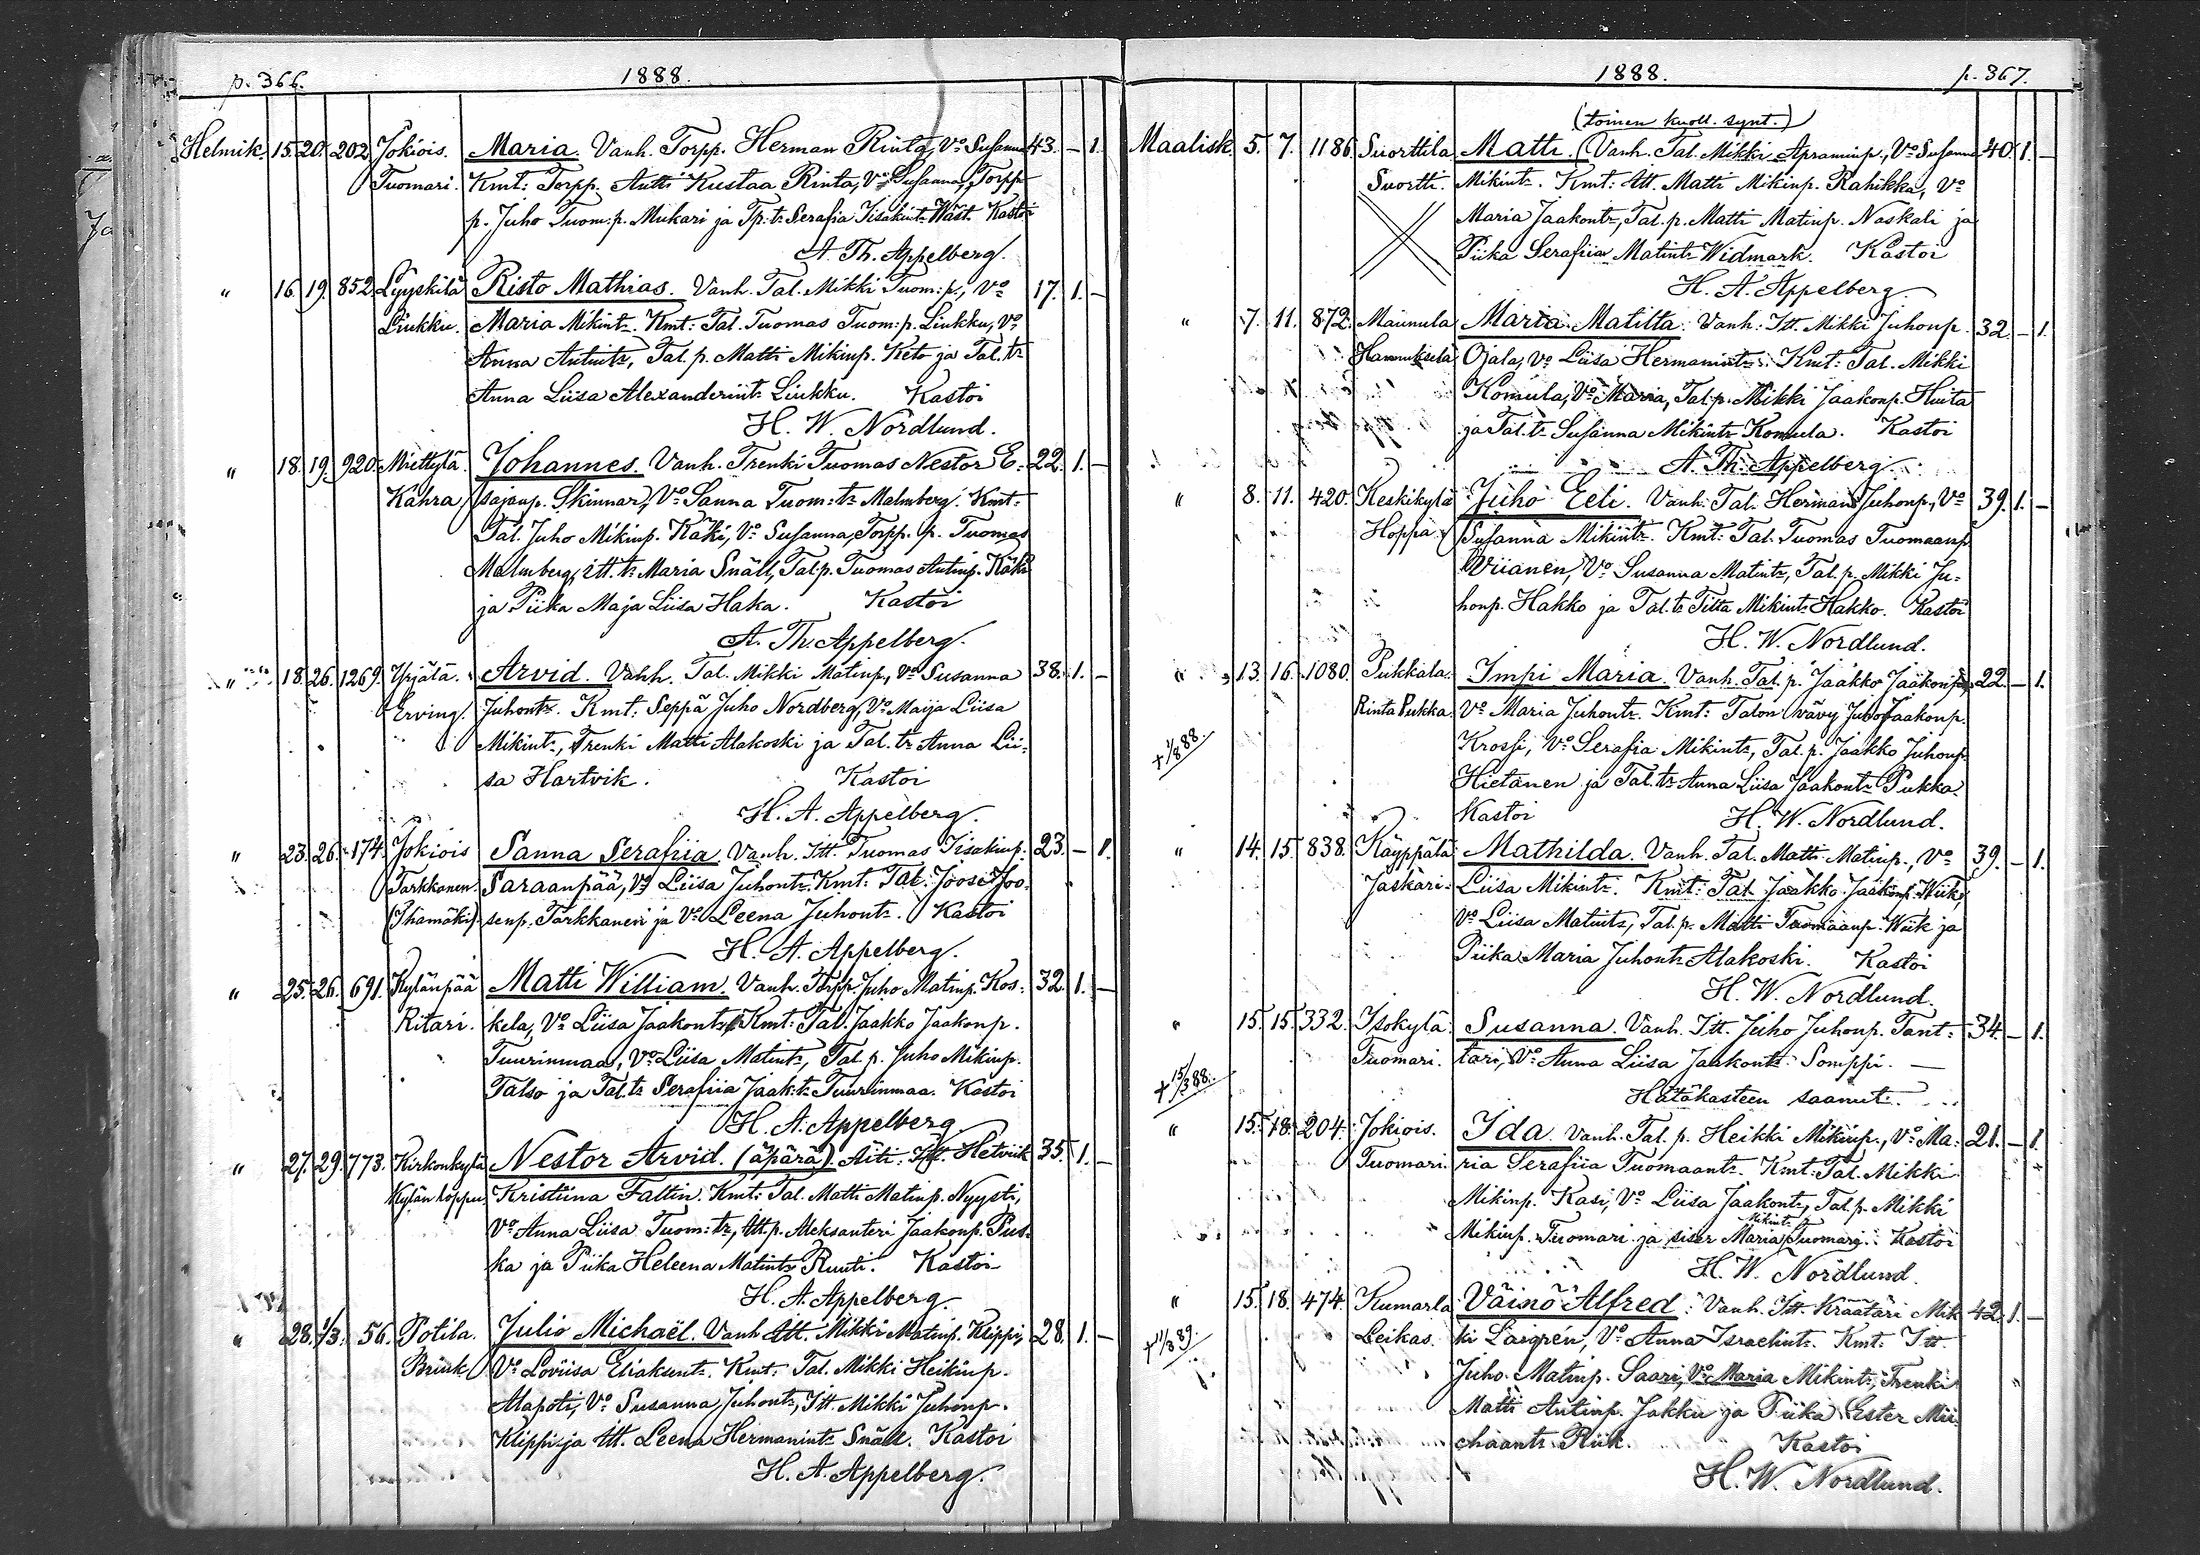 p. 366.
1888.
Helmik. 15. 20. 202. Jokiois. Maria. Vanh. Torpp. Herman Rinta, Vo Susanna 43. - 1.
Tuomari. Kmt: Torpp. Antti Kustaa Rinta, Vo Susanna, Torpp.
p. Juho Tuom:p. Mukari ja Tp.tr Serafia Iisakintr Wäst. Kastoi
A. Th. Appelberg.
" 16. 19. 852. Lyyskilä Risto Mathias. Vanh. Tal. Mikki Tuom:p., Vo 17. 1. -
Liukku. Maria Mikintr. Kmt: Tal. Tuomas Tuom:p. Liukku, Vo
Anna Antintr, Tal. p. Matti Mikinp. Keto ja Tal.tr
Anna Liisa Alexanderintr Liukku. Kastoi
H. W. Nordlund.
" 18. 19. 920. Miettylä. Johannes. Vanh. Trenki Tuomas Nestor E- 22. 1. -
Kahra. sajanp. Skinnar, Vo Sanna Tuom:tr Malmberg. Kmt:
Tal. Juho Mikinp. Käki, Vo Susanna, Torpp. p. Tuomas
Malmberg, Itt.tr Maria Snäll, Tal.p. Tuomas Antinp. Käki
ja Piika Maja Liisa Haka. Kastoi
A. Th. Appelberg.
" 18. 26. 1269. Yrjälä. Arvid. Vanh. Tal. Mikki Matinp., Vo Susanna 38. 1. -
Erving. Juhontr. Kmt: Seppä Juho Nordberg, Vo Maija Liisa
Mikintr, Trenki Matti Alakoski ja Tal.tr Anna Lii-
sa Hartvik. Kastoi
H. A. Appelberg.
" 23. 26. 174. Jokiois Sanna Serafiia. Vanh. Itt. Tuomas Iisakinp. 23. - 1.
Tarkkanen. Saraanpää, Vo Liisa Juhontr. Kmt: Tal. Joose Joo-
(Ihamäki). senp. Tarkkanen ja Vo Leena Juhontr. Kastoi
H. A. Appelberg.
" 25. 26. 691. Kylänpää Matti William. Vanh. Torpp. Juho Matinp. Kos- 32. 1. -
Ritari. kela, Vo Liisa Jaakontr. Kmt: Tal. Jaakko Jaakonp.
Tuurinmaa, Vo Liisa Matintr, Tal. p. Juho Mikinp.
Talso ja Tal.tr Serafiia Jaak:tr Tuurinmaa. Kastoi
H. A. Appelberg.
" 27. 29. 773. Kirkonkylä Nestor Arvid. (äpärä). Äiti: Itt. Hetviik 35. 1. -
Kylänloppu. Kristiina Faltin. Kmt: Tal. Matti Matinp. Nyysti,
Vo Anna Liisa Tuom:tr, Itt.p. Aleksanteri Jaakonp. Pus-
ka ja Piika Heleena Matintr Ruuti. Kastoi
H. A. Appelberg.
" 28. 1/3. 56. Potila. Julio Michaël. Vanh. Itt. Mikki Matinp. Klippi, 28. 1. -
Brusk Vo Loviisa Eliaksentr. Kmt: Tal. Mikki Heikinp.
Alapoti, Vo Susanna Juhontr, Itt. Mikki Juhonp.
Klippi ja Itt. Leena Hermanintr Snäll. Kastoi
H. A. Appelberg.
1888.
p. 367.
(toinen kuoll. synt.)
Maalisk. 5. 7. 1186. Suorttila Matti. (Vanh. Tal. Mikki Apraminp., Vo Susanna 40. 1. -
Suortti. Mikintr. Kmt: Itt. Matti Mikinp. Rahikka, Vo
Maria Jaakontr, Tal. p. Matti Matinp. Naskali ja
Piika Serafiia Matintr Widmark. Kastoi
H. A. Appelberg.
" 7. 11. 872. Maunula Maria Matilta. Vanh: Itt. Mikki Juhonp. 32. - 1.
Hannuksela Ojala, Vo Liisa Hermanintr. Kmt: Tal. Mikki
Komula, Vo Maria, Tal.p. Mikki Jaakonp. Huita
ja Tal.tr Susanna Mikintr Komula. Kastoi
A. Th. Appelberg.
" 8. 11. 420. Keskikylä Juho Eeli. Vanh. Tal. Herman Juhonp., Vo 39. 1. -
Hoppa. Susanna Mikintr. Kmt: Tal. Tuomas Tuomaanp.
Viianen, Vo Susanna Matintr, Tal. p. Mikki Ju-
honp. Hakko ja Tal.tr Tilta Mikintr Hakko. Kastoi
H. W. Nordlund.
" 13. 16. 1080. Pukkala. Impi Maria. Vanh. Tal. p. Jaakko Jaakonp., 22. - 1.
Rinta Pukka. Vo Maria Juhontr. Kmt: Talon vävy Juho Jaakonp.
+ 1/8 88. Krossi, Vo Serafia Mikintr, Tal. p. Jaakko Juhonp.
Hietanen ja Tal.tr Anna Liisa Jaakontr Pukka.
Kastoi H. W. Nordlund.
" 14. 15. 838. Käyppälä Mathilda. Vanh. Tal. Matti Matinp., Vo 39. - 1.
Jaskari. Liisa Mikintr. Kmt: Tal. Jaakko Jaakonp. Wiik,
Vo Liisa Matintr, Tal. p. Matti Tuomaanp. Wiik ja
Piika Maria Juhontr Alakoski. Kastoi
H. W. Nordlund.
" 15. 15. 332. Isokylä. Susanna. Vanh. Itt. Juho Juhonp. Tant- 34. - 1.
Tuomari. tari, Vo Anna Liisa Jaakontr Somppi. -
+ 15/3 88. Hätäkasteen saanut.
" 15. 18. 204. Jokiois. Ida. Vanh. Tal. p. Heikki Mikinp., Vo Ma- 21. - 1.
Tuomari. ria Serafiia Tuomaantr. Kmt: Tal. Mikki
Mikinp. Kasi, Vo Liisa Jaakontr, Tal. p. Mikki
Mikinp. Tuomari ja siser Maria Mikintr Tuomari. Kastoi
H. W. Nordlund.
" 15. 18. 474. Kumarla Väinö Alfred. Vanh. Itt. Kräätäri Mik- 42. 1. -
+ 11/8 89. Leikas. ki Laigrén, Vo Anna Israelintr. Kmt. Itt.
Juho Matinp. Saari, Vo Maria Mikintr, Trenki
Matti Antinp. Jakku ja Piika Ester Mii-
chaantr Riik. Kastoi
H. W. Nordlund.